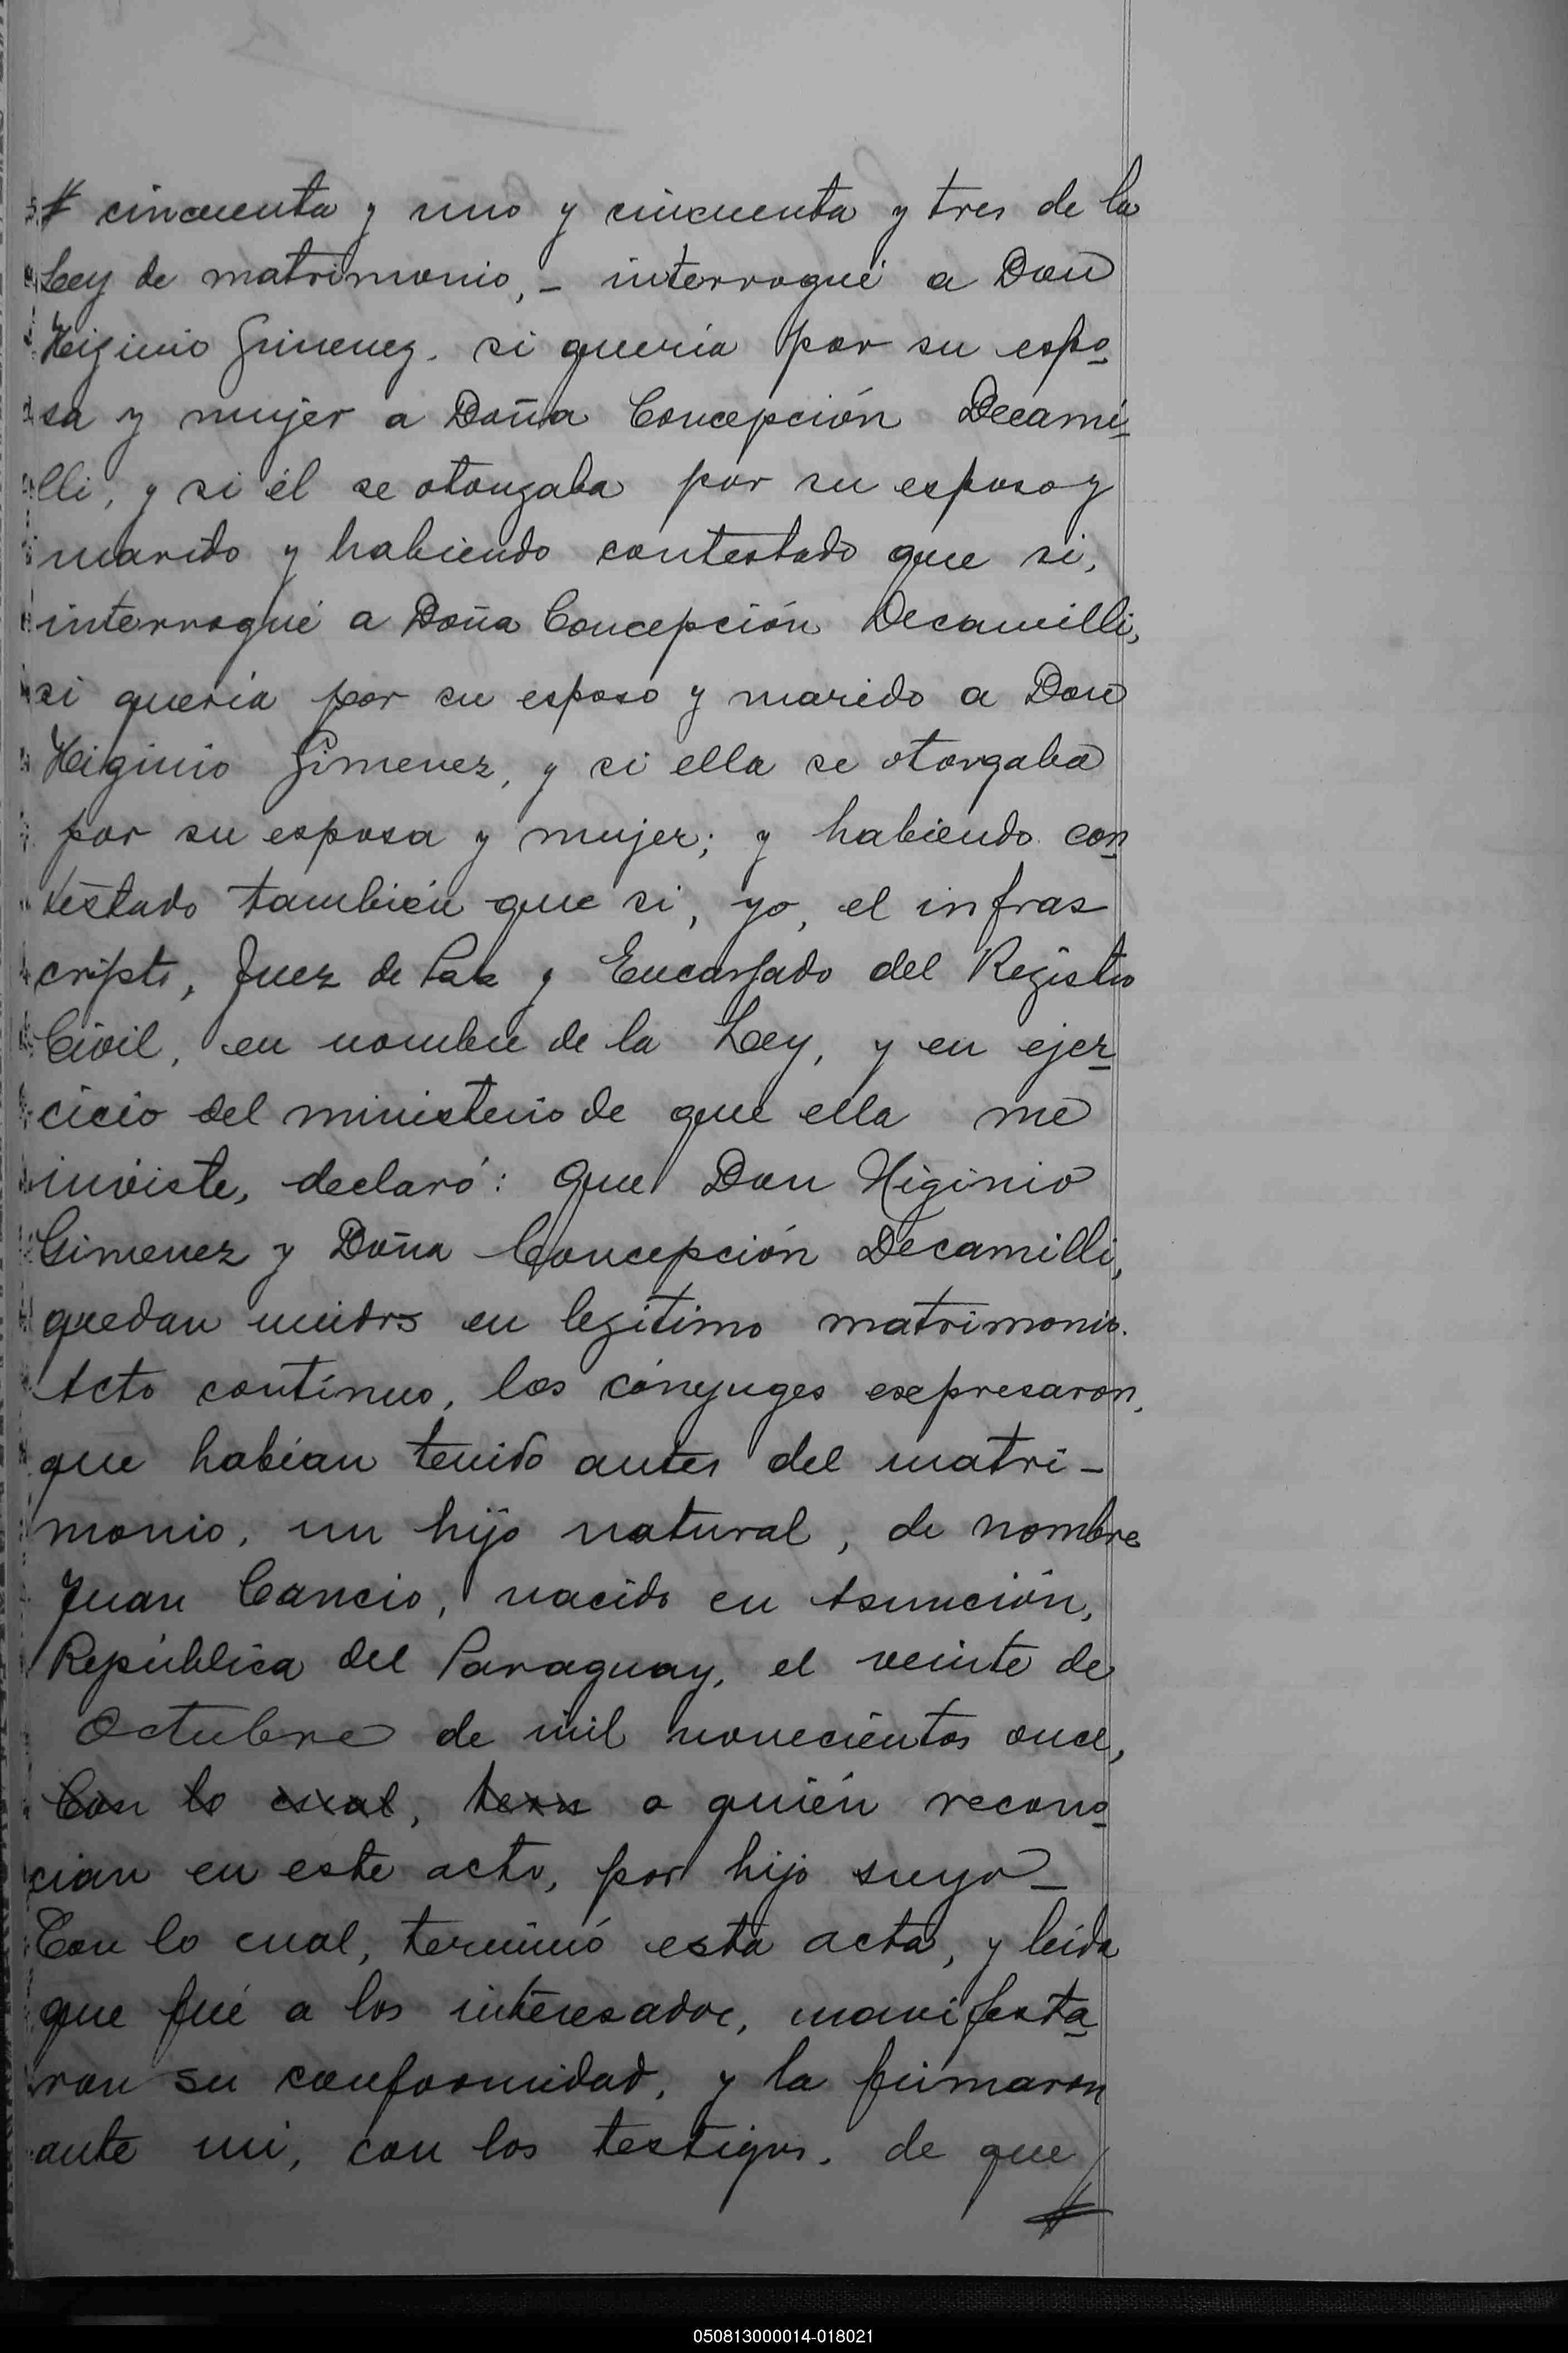 # cincuenta y uno y cincuenta y tres de la
Ley de matrimonio, - interrogué a Don
Higinio Gimenez, si quería por su espo
sa y mujer a Doña Concepción Decami-
lli, y si él se otorgaba por su esposo y
marido y habiendo contestado que si,
interrogué a Doña Concepción Decamilli,
si quería por su esposo y marido a Don
Higinio Gimenez, y si ella se otorgaba
por su esposa y mujer; y habiendo con
testado también que si, yo, el infras
cripto, Juez de Paz y Encargado del Registro
Civil, en nombre de la Ley, y en ejer
cicio del ministerio de que ella me
inviste, declaró: Que Don Higinio
Gimenez y Doña Concepción Decamilli,
quedan unidos en legítimo matrimonio.
Acto contínuo, los cónyuges espresaron,
que habían tenido antes del matri-
monio, un hijo natural, de nombre
Juan Cancio, nacido en Asunción,
República del Paraguay, el veinte de
Octubre de mil novecientos once,
Con lo cual, term a quién recono
cian en este acto, por hijo suyo-
Con lo cual, terminó esta acta, y leída
que fué a los interesados, manifesta
ron su conformidad, y la firmaron
ante mi, con los testigos, de que
#
050813000014-018021